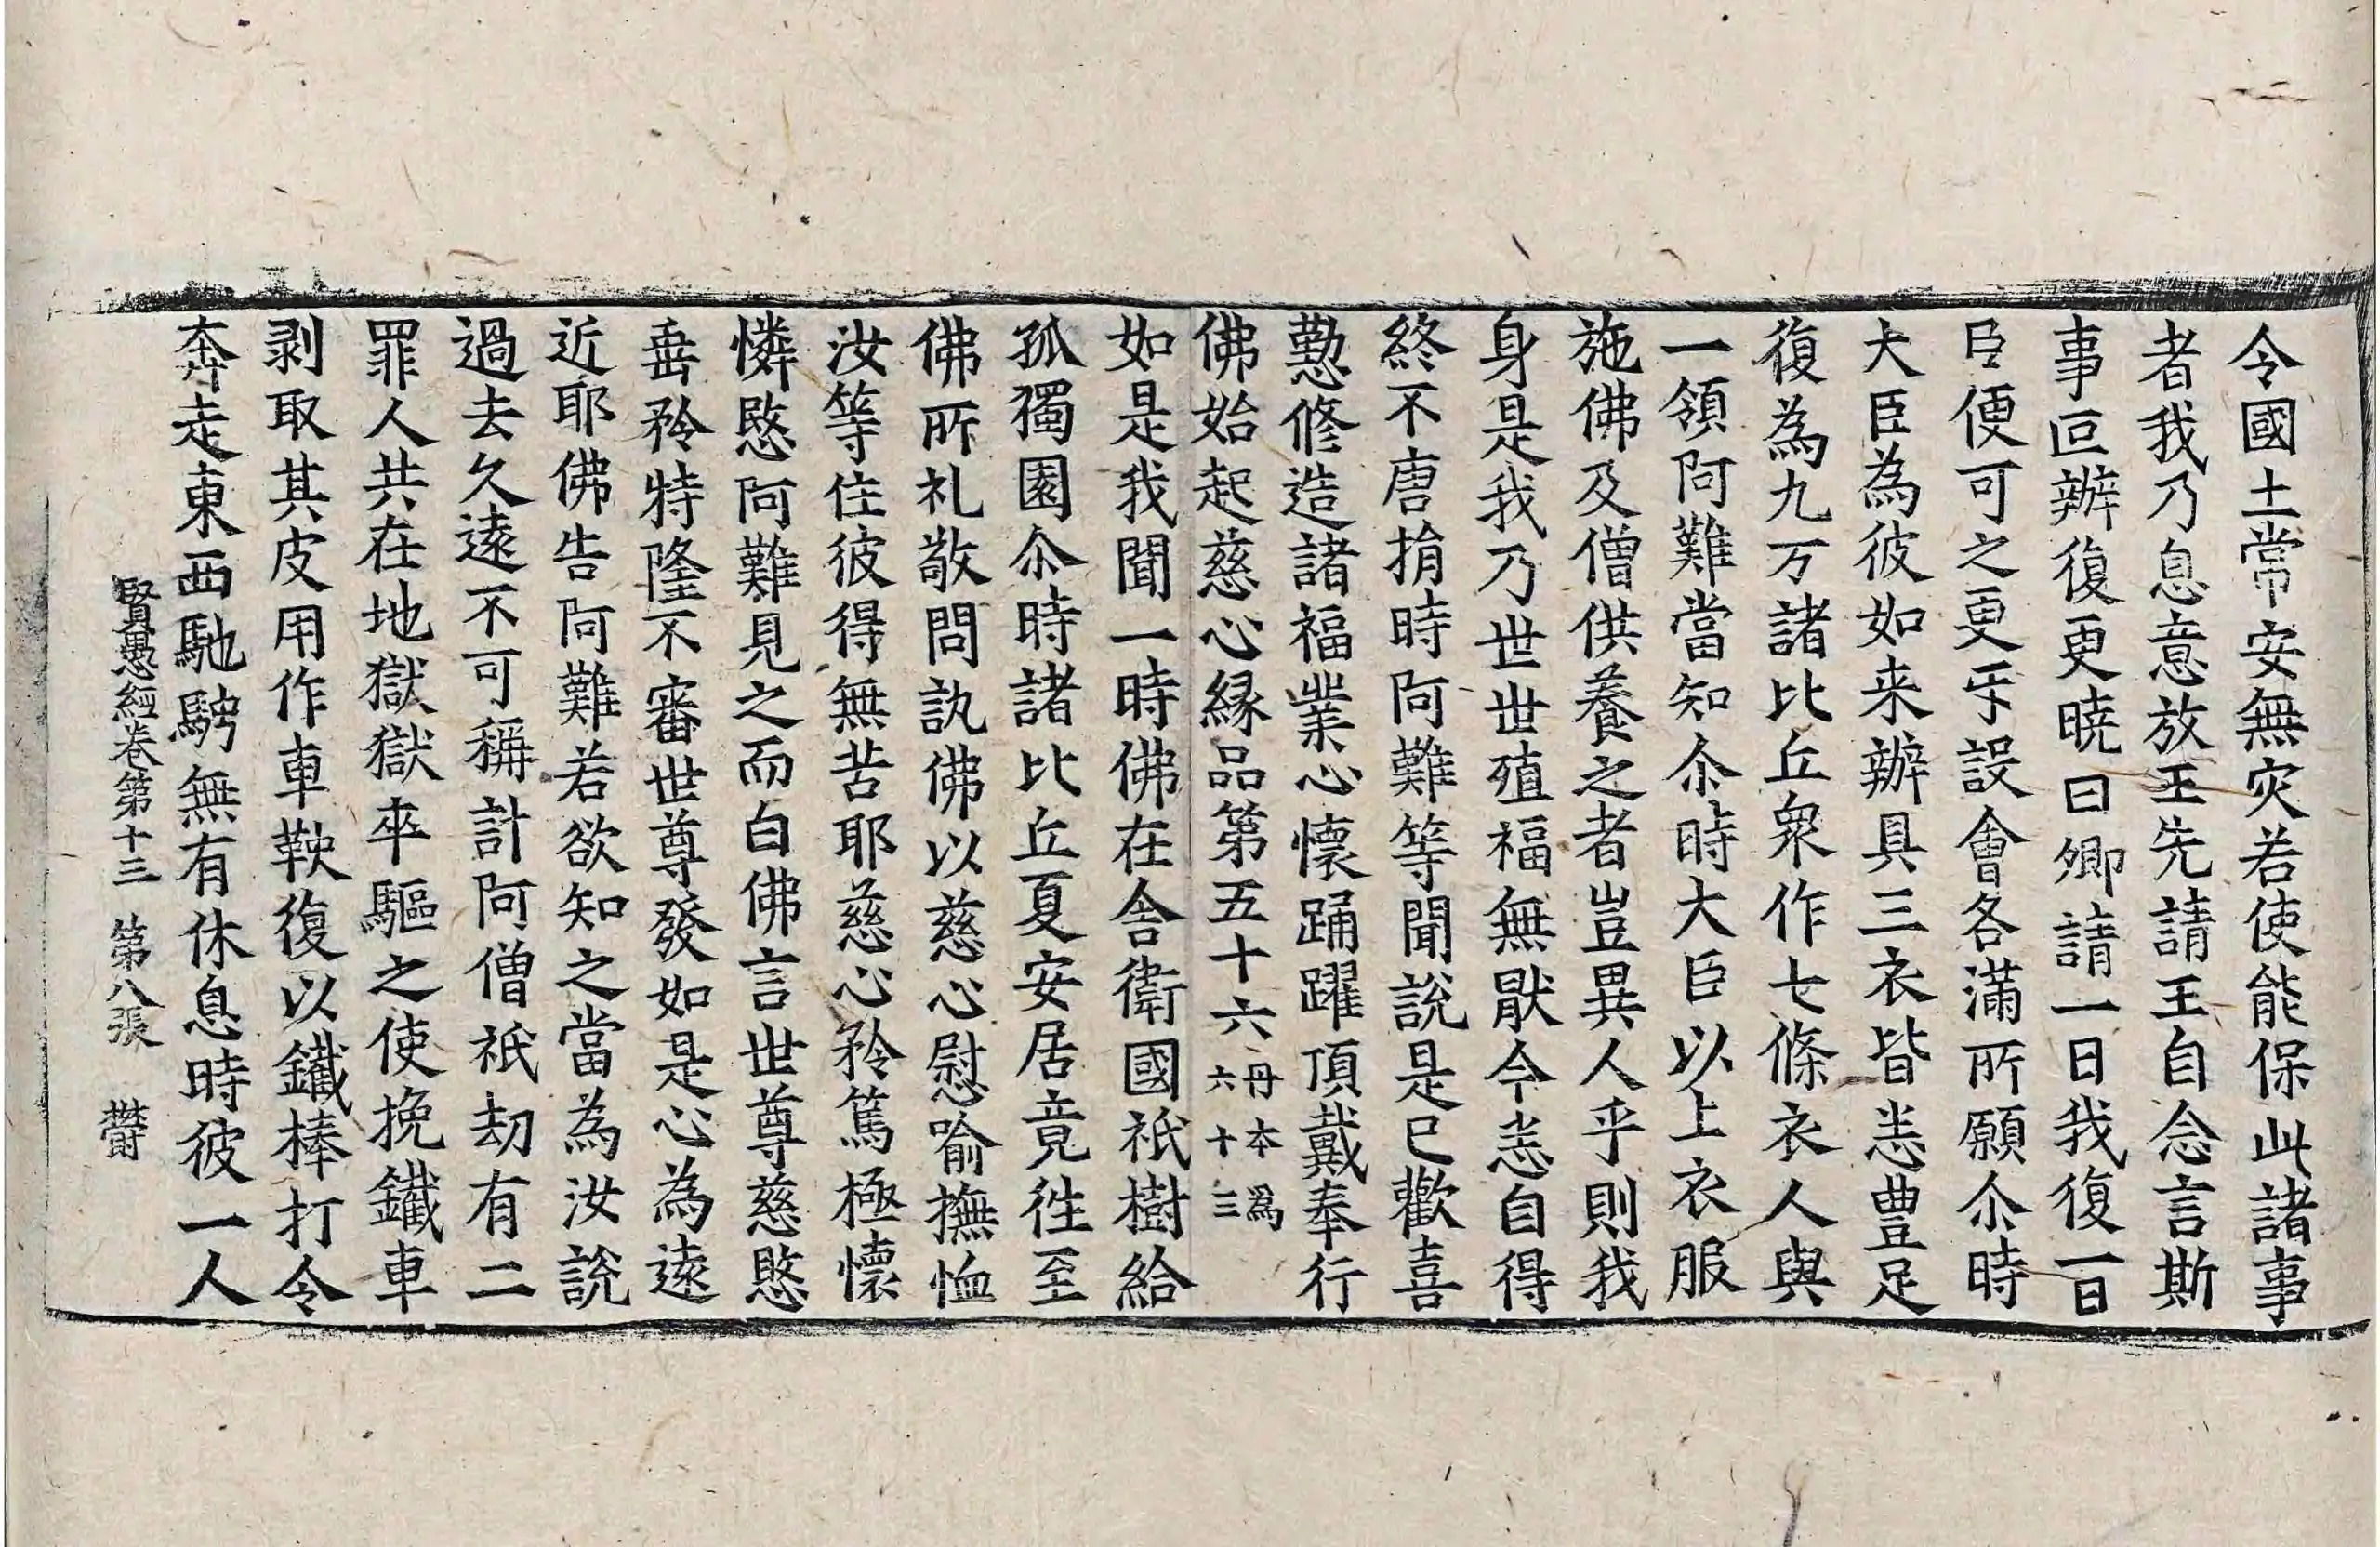 令國土常安無灾若使能保此諸事
者我乃息意放王先請王自念言斯
事叵辦復更曉曰卿請一日我復一日
臣便可之更互設會各滿所願尒時
大臣為彼如来辦具三衣皆悉豊足
復為九万諸比丘衆作七條衣人與
一領阿難當知尒時大臣以上衣服
施佛及僧供養之者豈異人乎則我
身是我乃世世殖福無猒今悉自得
終不唐捐時阿難等聞說是已歡喜
懃修造諸福業心懷踊躍頂戴奉行
佛始起慈心緣品第五十六丹本為六十三
如是我聞一時佛在舍衛國祇樹給
孤獨園尒時諸比丘夏安居竟徃至
佛所礼敬問訊佛以慈心慰喻撫恤
汝等住彼得無苦耶慈心矜篤極懷
憐愍阿難見之而白佛言世尊慈愍
垂矜特隆不審世尊發如是心為遠
近耶佛告阿難若欲知之當為汝說
過去久遠不可稱計阿僧祇劫有二
罪人共在地獄獄卒驅之使挽鐵車
剥取其皮用作車鞅復以鐵棒打令
奔走東西馳騁無有休息時彼一人
賢愚經卷第十三 第八張 欝